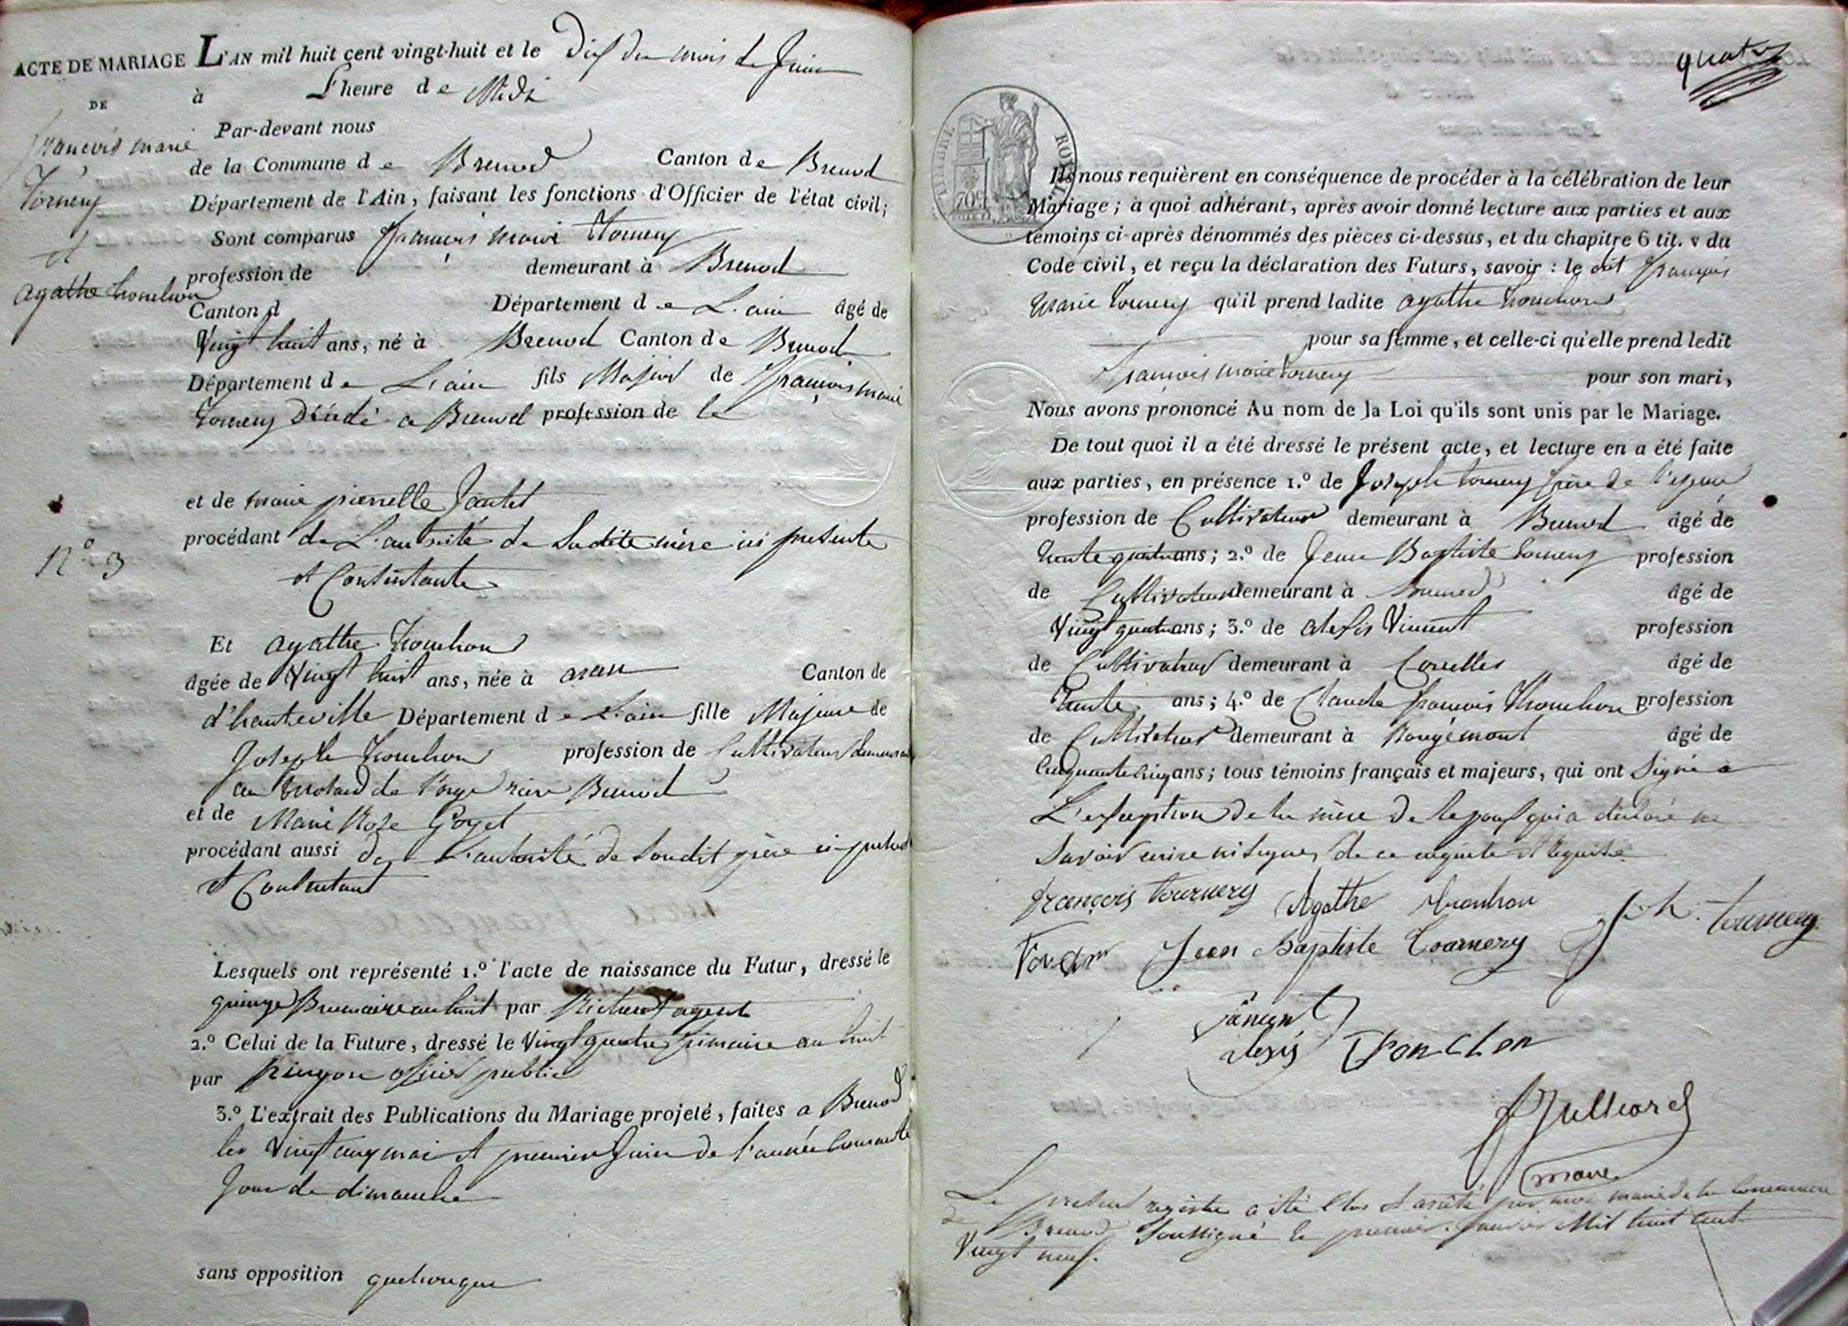 ACTE DE MARIAGE L'AN mil huit cent vingt-huit et le Dix du mois de Juin
DE à L'heure de Midi
françois marie
Tornery
et
agathe tronchon
Par-devant nous
de la Commune de Brenod Canton de Brenod
Département de l'Ain, faisant les fonctions d'Officier de l'état civil;
Sont comparus françois marie Tornery
profession de demeurant à Brenod
Canton d Département de L'ain âgé de
Vingt huit ans, né à Brenod Canton de Brenod
Département de L'ain fils Majeur de françois marie
Tornery Décédé a Brenod profession de
et de marie pierrette Jantet
procédant de L'autorité de Ladite mère ici présente
et Consentante
N.º 3
Et agathe tronchon
âgée de Vingt huit ans, née à aran Canton de
d'hauteville Département de L'ain fille Majeure de
Joseph tronchon profession de Cultivateur demeurant
au de Brenod
et de Marie Roze Goyet
procédant aussi de L'autorité de Sondit père ici présent
et Consentant
Lesquels ont représenté 1.º l'acte de naissance du Futur, dressé le
quinze Brumaire an huit par Richerot agent
2.º Celui de la Future, dressé le Vingt quatre frimaire an huit
par pinçon officier public
3.º L'extrait des Publications du Mariage projeté, faites a Brenod
les Vingt cinq mai et premier Juin de l'année Courante
Jour de dimanche
sans opposition quelconque
quatre
TIMBRE ROYAL
70c
Ils nous requièrent en conséquence de procéder à la célébration de leur
Mariage; à quoi adhérant, après avoir donné lecture aux parties et aux
témoins ci-après dénommés des pièces ci-dessus, et du chapitre 6 tit. v du
Code civil, et reçu la déclaration des Futurs, savoir: le dit françois
marie tornery qu'il prend ladite agathe tronchon
pour sa femme, et celle-ci qu'elle prend ledit
françois marie tornery pour son mari,
Nous avons prononcé Au nom de la Loi qu'ils sont unis par le Mariage.
De tout quoi il a été dressé le présent acte, et lecture en a été faite
aux parties, en présence 1.º de Joseph tornery frère de l'époux
profession de Cultivateur demeurant à Brenod âgé de
trente quatre ans; 2.º de Jean Baptiste tornery profession
de Cultivateur demeurant à Brenod âgé de
Vingt quatre ans; 3.º de alexis Vincent profession
de Cultivateur demeurant à Corcelles âgé de
trente ans; 4.º de Claude françois tronchon profession
de Cultivateur demeurant à Rougemont âgé de
Cinquante Cinq ans; tous témoins français et majeurs, qui ont Signé a
L'exception de la mère de lepoux qui a déclaré ne
Savoir écrire ni signer de ce enquise et requise
françois tournery Agathe tronchon
Jh. tournery
Jean Baptiste tournery
Vincent
alexis tronchon
Julliard
maire
Le present registre a été Clos et arreté par moi maire de la Commune
de Brenod Soussigné le premier Janvier Mil huit cent
Vingt neuf.